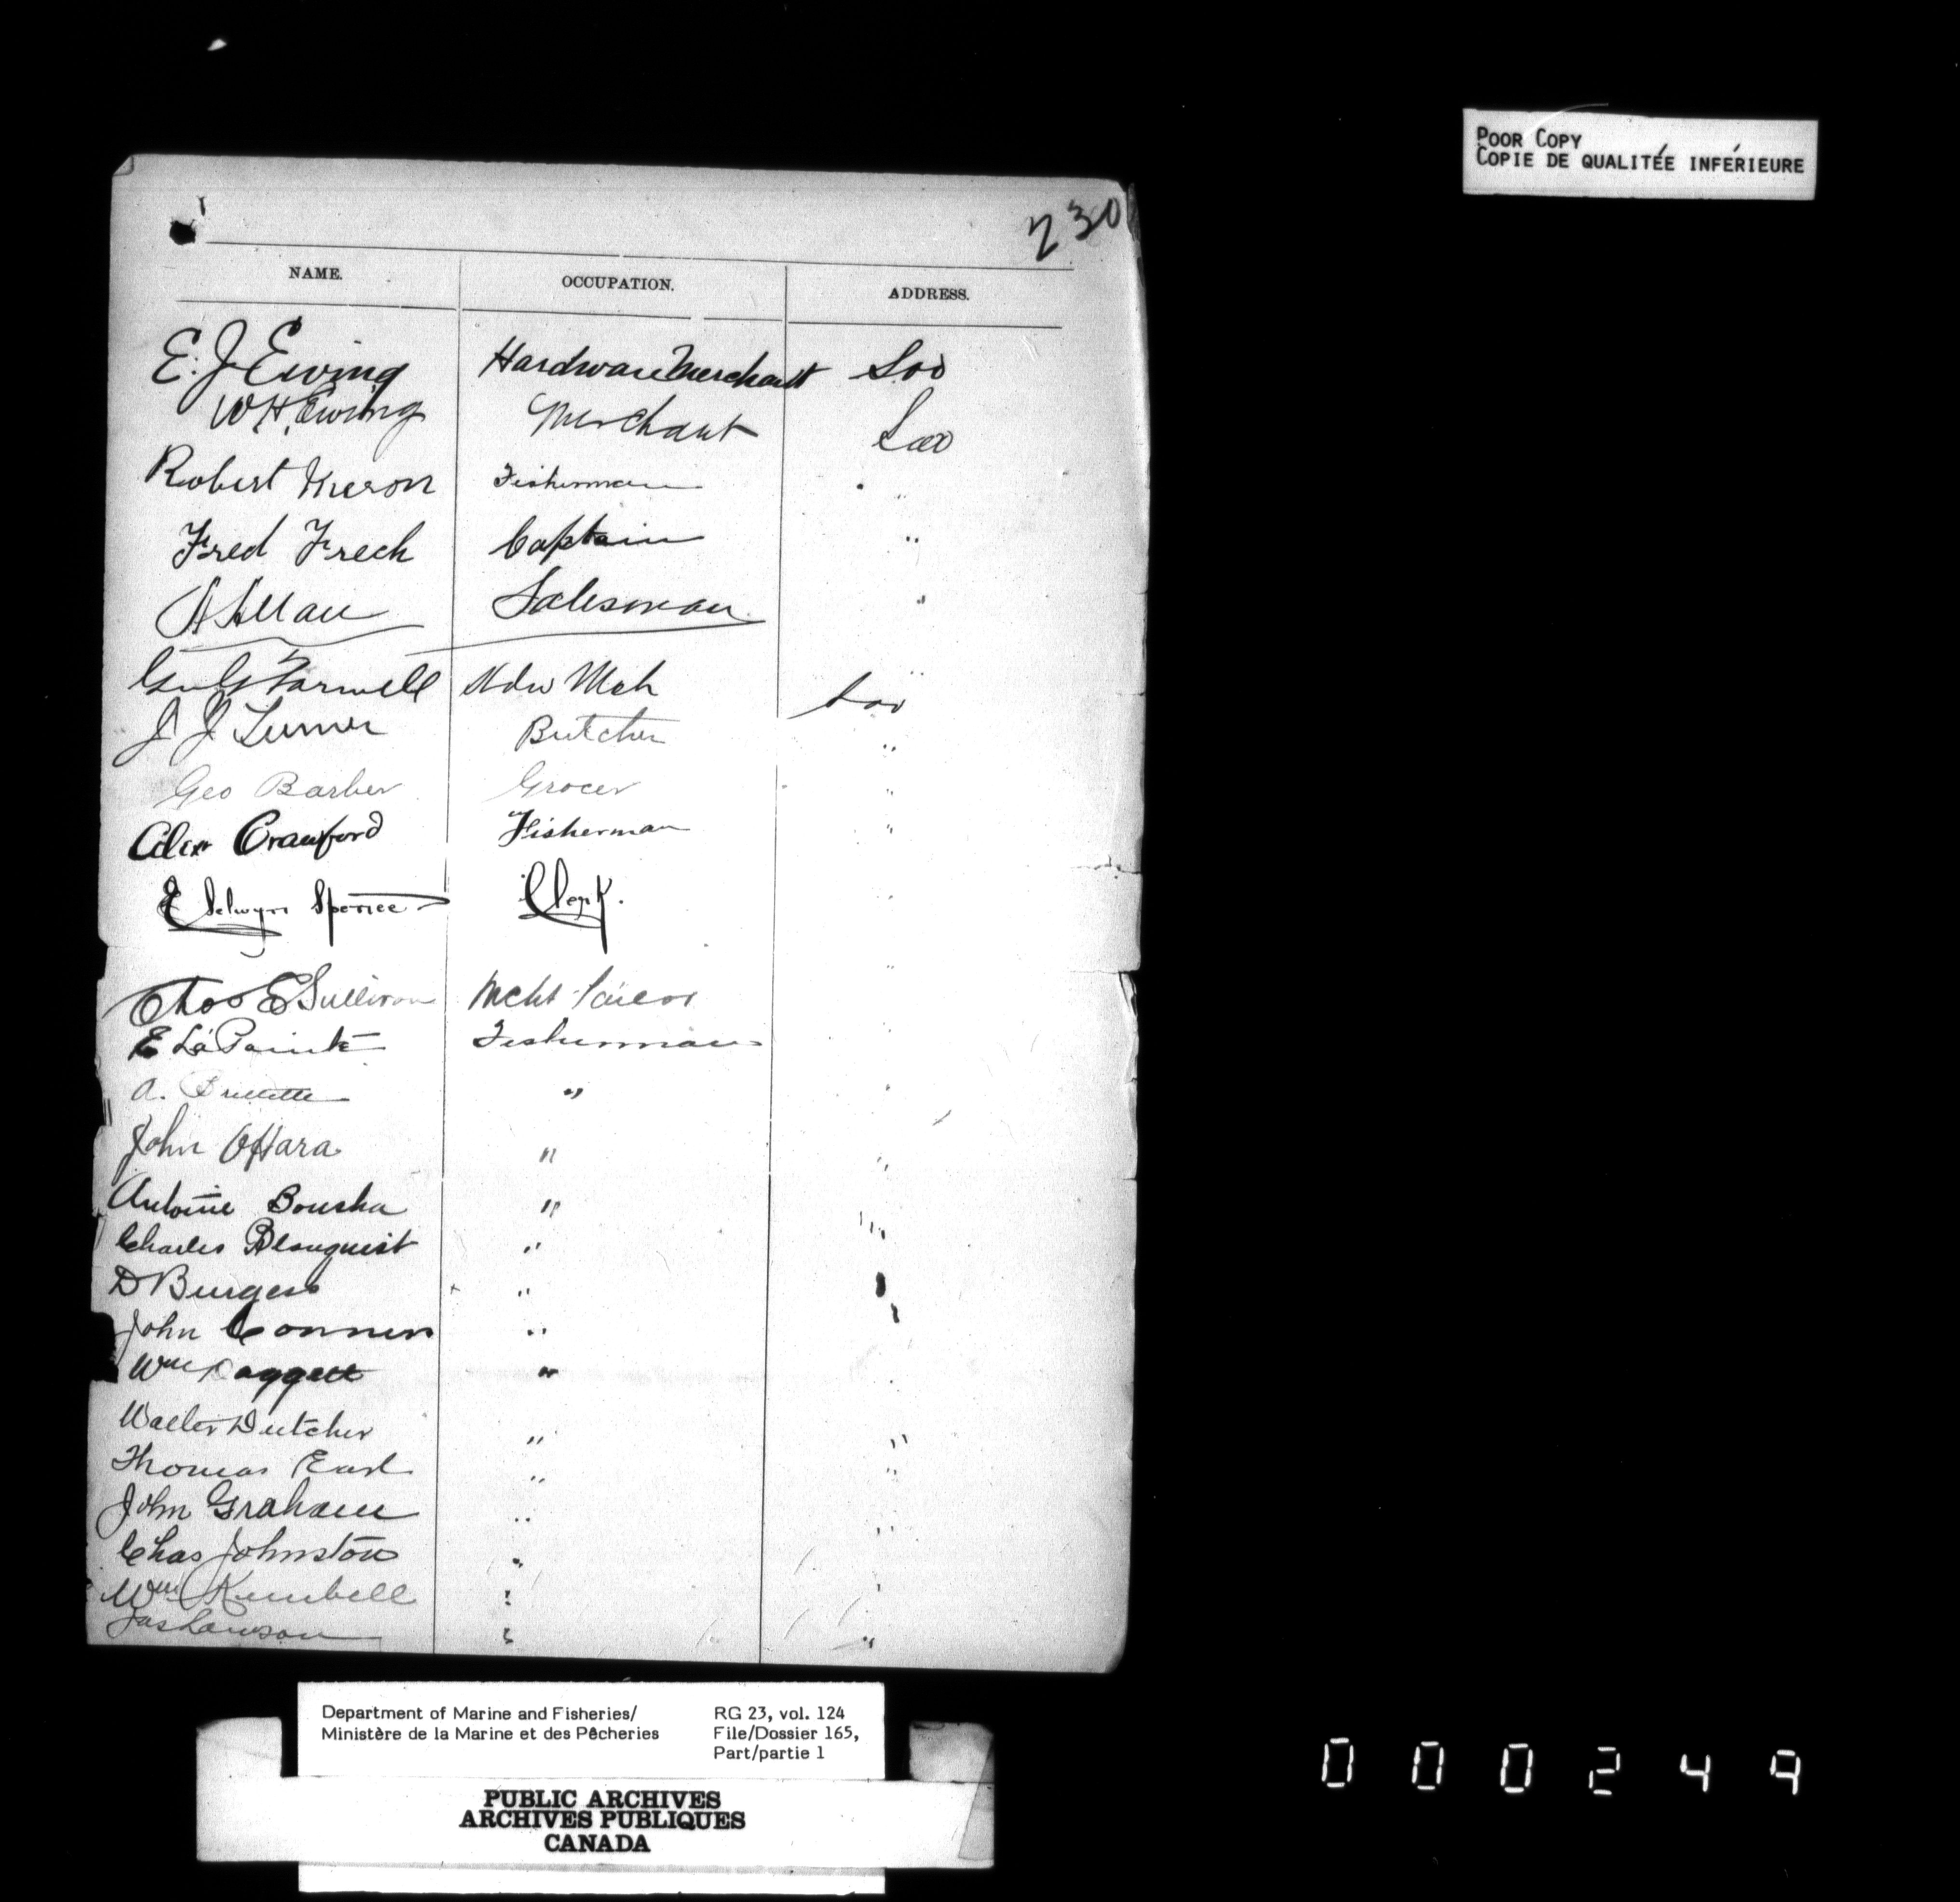 POOR COPY
COPIE DE QUALITÉE INFÉRIEURE
230
NAME. OCCUPATION. ADDRESS.
E. J. Ewing Hardware Merchant Soo
W H Ewing Merchant Soo
Robert Fisherman "
Fred Frech Captain "
Salesman "
Farwell Hdw Mch Soo
J J Turner Butcher "
Geo Barber Grocer "
Alex Crawford Fisherman "
E Selwyn Spence Clerk. "
Thos E Sullivan Mcht Tailor "
E LaPointe Fisherman "
A. " "
John O'Hara " "
Antoine Bousha " "
Charles Blonquist " "
D Burgess " "
John Connors " "
Wm Daggett " "
Walter Dutcher " "
Thomas Earl " "
John Graham " "
Chas Johnston " "
Wm Kimbell " "
Jas Lawson " "
Department of Marine and Fisheries/ RG 23, vol. 124
Ministère de la Marine et des Pêcheries File/Dossier 165,
Part/partie 1
PUBLIC ARCHIVES
ARCHIVES PUBLIQUES
CANADA
000249